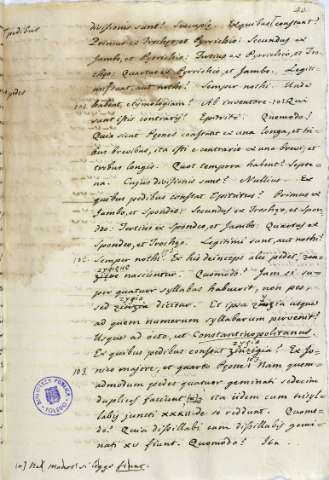 40.
pedibus
divisionis sunt? Sescuplę. Ex quibus constant?
Primus ex Trocheo, et Pyrrichio: Secundus ex
Iambo, et Pyrrichio: Tertius ex Pyrrichio, et Tro-
cheo: Quartus ex Pyrrichio, et Iambo. Legiti-
mi sunt, aut nothi? Semper nothi. Unde
101. habent etymologiam? Ab inventore. Qui
sunt istis contrarij? Epitriti. Quomodo?
Quia sicut Peones constant ex una longa, et tri-
bus brevibus, ita isti e contrario ex una brevi, et
tribus longis. Quot tempora habent? Septe-
na. Cujus divisionis sunt? Nullius. Ex
quibus pedibus constat Epitritus? Primus ex
Iambo, et Spondeo: Secundus ex Trocheo, et Spon-
deo: Tertius ex Spondeo, et Iambo: Quartus ex
Spondeo, et Trocheo. Legitimi sunt, aut nothi?
102. Semper nothi. Ex his deinceps alii pedes,
nascuntur. Quomodo? Iam si su-
per quatuor syllabas habuerit, non pes,
sed zygia dicitur. Et ipsa usque
ad quem numerum syllabarum pervenit?
Usque ad octo, ut Constantinopolitanus.
Ex quibus pedibus constat zygia? Ex Io-
nico majore, et quarto Peone. Nam quem-
103. admodum pedes quatuor geminati sedecim
duplices faciunt (a) ita iidem cum trisyl-
labis juncti XXXII. de se reddunt. Quomo-
do? Quia dissillabi cum dissillabis gemi-
nati XV fiunt. Quomodo? Ita...
BIBLIOTECA PUBLICA
TOLEDO